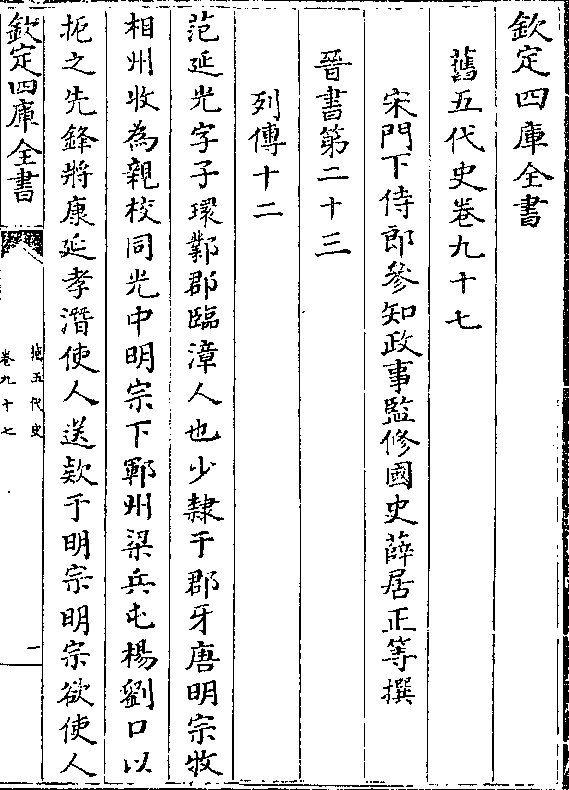 欽定四庫全書
舊五代史卷九十七
宋門下侍郎參知政事監修國史薛居正等撰
晉書第二十三
列傳十二
范延光字子環鄴郡臨漳人也少隸于郡牙唐明宗牧
相州收為親校同光中明宗下鄆州梁兵屯楊劉口以
扼之先鋒將康延孝潛使人送欵于明宗明宗欲使人
欽定四庫全書
舊五代史
卷九十七
一